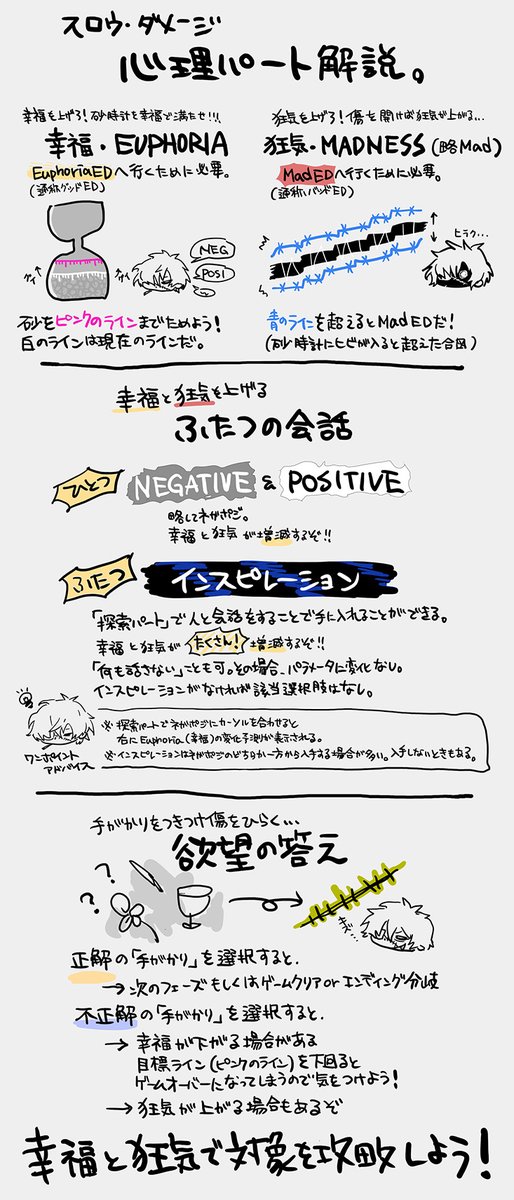 スロウ・ダメージ
心理パート解説。
幸福を上げろ!砂時計を幸福で満たせ!!!
幸福・EUPHORIA
EuphoriaEDへ行くために必要。
(通称グッドED)
グイ
グイ
NEG
POSI
砂をピンクのラインまでためよう!
白のラインは現在のラインだ。
狂気を上げろ!傷を開けば狂気が上がる…
狂気・MADNESS(略Mad)
MadEDへ行くために必要。
(通称バッドED)
ヒラク…
青のラインを超えるとMadEDだ!
(砂時計にヒビが入ると超えた合図)
幸福と狂気を上げる
ふたつの会話
ひとつ
NEGATIVE & POSITIVE
略してネガポジ。
幸福と狂気が増減するぞ!!
ふたつ
インスピレーション
「探索パート」で人と会話をすることで手に入れることができる。
幸福と狂気がたくさん!増減するぞ!!
「何も話さない」ことも可。その場合、パラメータに変化なし。
インスピレーションがなければ該当選択肢はなし。
ワンポイント
アドバイス
※探索パートでネガポジにカーソルを合わせると
右にEuphoria(幸福)の変化予測が表示される。
※インスピレーションはネガポジのどちらか一方から入手する場合が多い。入手しないときもある。
手がかりをつきつけ傷をひらく…
欲望の答え
?
?
キザ…
正解の「手がかり」を選択すると、
→次のフェーズもしくはゲームクリアorエンディング分岐
不正解の「手がかり」を選択すると、
→幸福が下がる場合がある
目標ライン(ピンクのライン)を下回ると
ゲームオーバーになってしまうので気をつけよう!
→狂気が上がる場合もあるぞ
幸福と狂気で対象を攻略しよう!